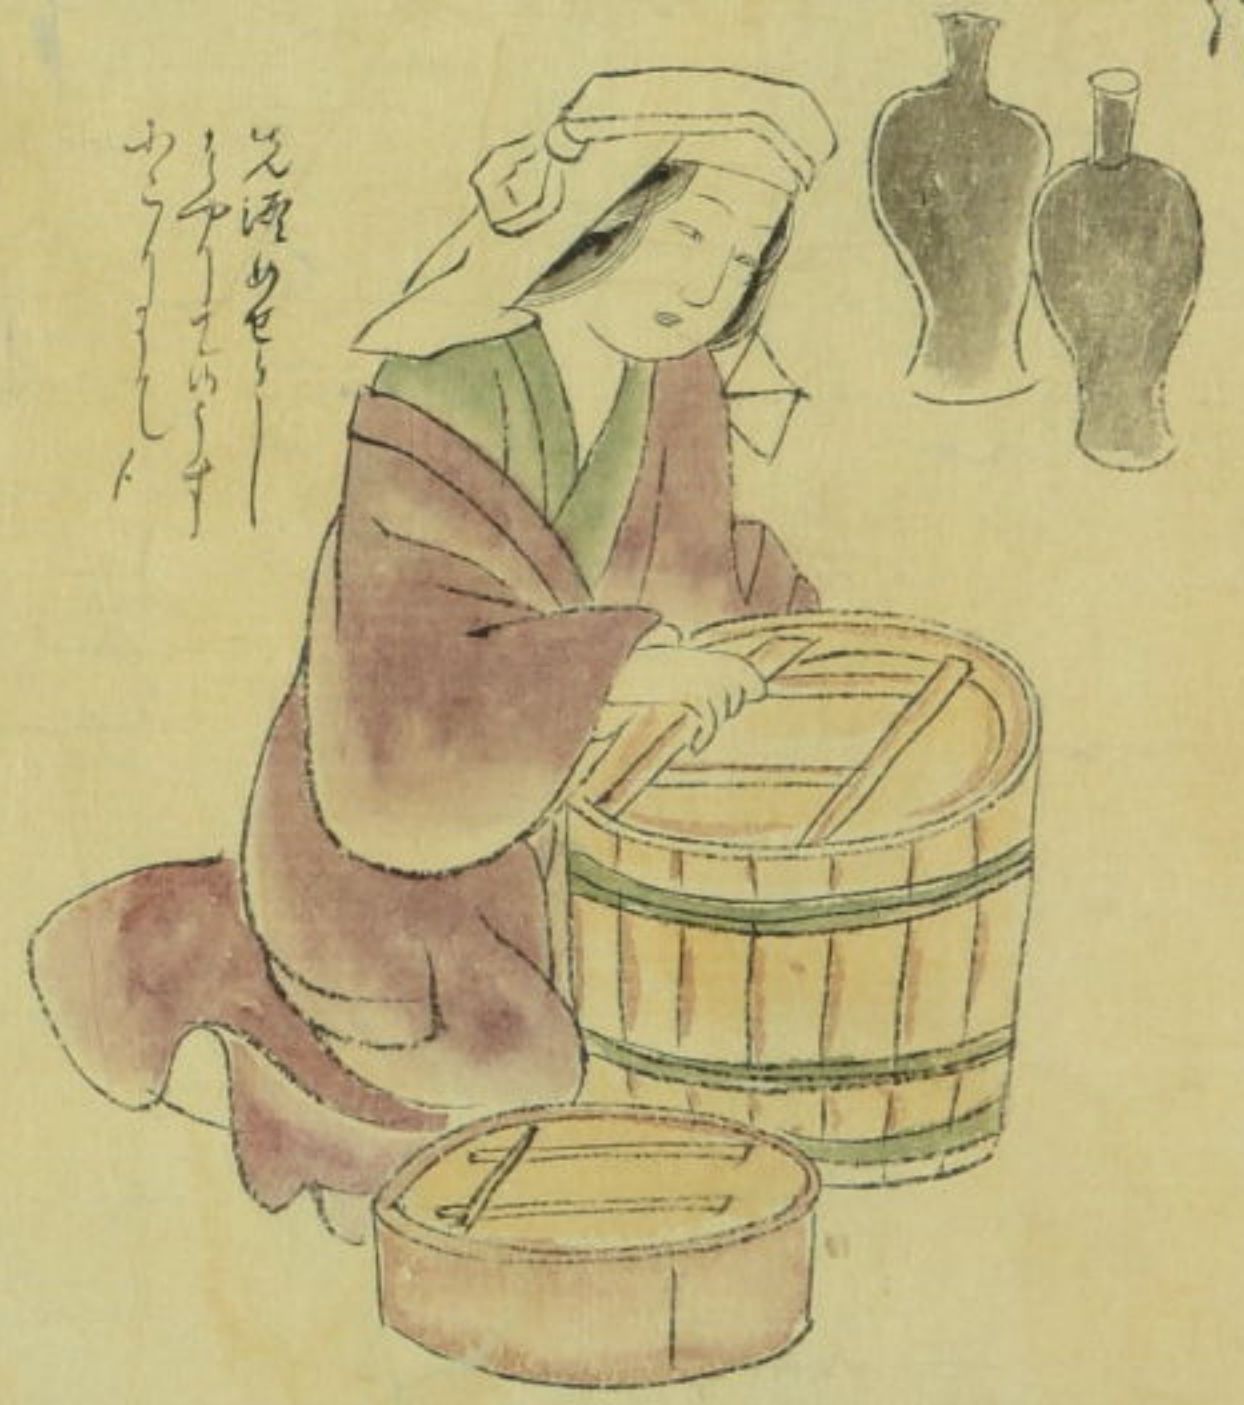 先酒めせかし
はやりて候うす
にこりも候